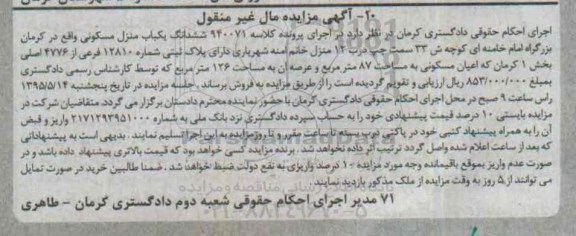 ۲۰- آگهی مزایده مال غیر منقول
اجرای احکام حقوقی دادگستری کرمان در نظر دارد در اجرای پرونده کلاسه ۹۴۰۰۷۱ ششدانگ یکباب منزل مسکونی واقع در کرمان
بزرگراه امام خامنه ای کوچه ش ۳۳ سمت چپ درب ۱۲ منزل خانم آمنه شهریاری دارای پلاک ثبتی شماره ۱۲۸۱۰ فرعی از ۴۷۷۶ اصلی
بخش ۱ کرمان که اعیان مسکونی به مساحت ۸۷ متر مربع و عرصه آن به مساحت ۱۳۶ متر مربع که توسط کارشناس رسمی دادگستری
بمبلغ ۸۵۳/۰۰۰/۰۰۰ ریال ارزیابی و تقویم گردیده است را از طریق مزایده به فروش برساند . جلسه مزایده در تاریخ پنجشنبه ۱۳۹۵/۵/۱۴
راس ساعت ۹ صبح در محل اجرای احکام حقوقی دادگستری کرمان با حضور نماینده محترم دادستان برگزار می گردد. متقاضیان شرکت در
مزایده بایستی ۱۰ درصد قیمت پیشنهادی خود را به حساب سپرده دادگستری نزد بانک ملی به شماره ۲۱۷۱۲۹۲۹۵۱۰۰۰ واریز و فیش
آن را به همراه پیشنهاد کتبی خود در پاکتی درب بسته تا ساعت مقرر و تا روز مزایده به این اجرا تسلیم نمایند . بدیهی است به پیشنهاداتی
که بعد از ساعت اعلام شده واصل گردد ترتیب اثر داده نخواهد شد . برنده مزایده کسی خواهد بود که قیمت بالاتری پیشنهاد داده باشد و در
صورت عدم واریز بموقع باقیمانده وجه مورد مزایده ۱۰ درصد واریزی به نفع دولت ضبط خواهد شد . ضمنا طالبین خرید در صورت تمایل
می توانند از ۵ روز به وقت مزایده از ملک مذکور بازدید نمایند.
۷۱ مدیر اجرای احکام حقوقی شعبه دوم دادگستری کرمان - طاهری